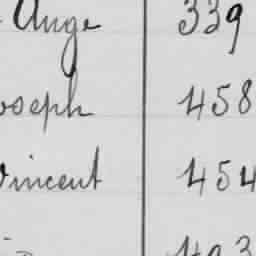 Ange 339
oseph 458
Vincent 454
493